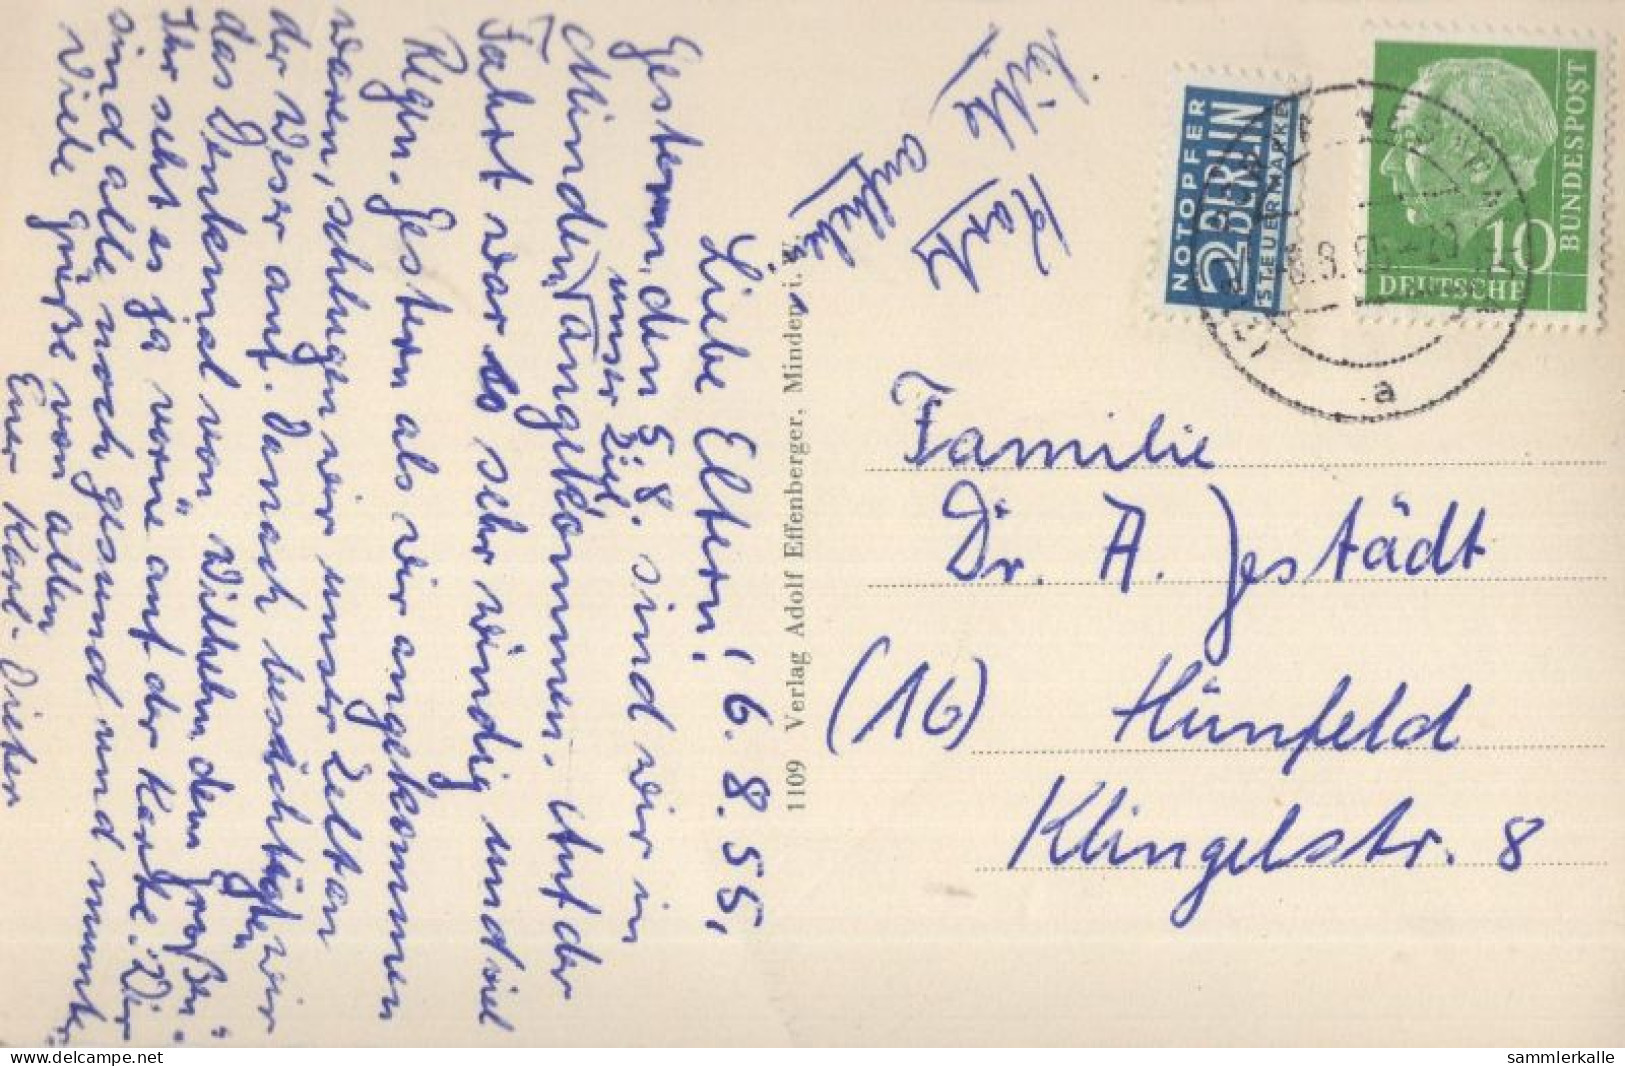 Liebe Eltern! 6. 8. 55,
Gestern, den 5.8. sind wir in
unser Ziel,
Minden, angekommen. Auf der
Fahrt war so sehr windig und viel
Regen. Gestern als wir angekommen
waren, schlugen wir unser Zelt an
der Weser auf. Danach besichtigten wir
das Denkmal von „Wilhelm dem Großen".
Ihr seht es ja vorne auf der Karte. Wir
sind alle noch gesund und munter.
Viele Grüße von allen
Euer Karl-Dieter
bitte
Karte
aufheben!
1109 Verlag Adolf Effenberger, Minden i. W.
NOTOPFER
2 BERLIN
STEUERMARKE
DEUTSCHE
BUNDESPOST
10
a
Familie
Dr. A. Jestädt
(16) Hünfeld
Klingelstr. 8
www.delcampe.net
sammlerkalle